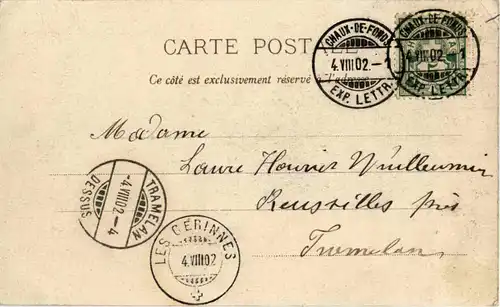 CARTE POSTALE
Ce côté est exclusivement réservé à l'adresse
CHAUX-DE-FONDS
4.VIII 02.-1
EXP. LETTR.
CHAUX-DE-FONDS
4.VIII 02.-1
EXP. LETTR.
Madame
Laure Houriet Vuilleumier
Reussilles près
Tramelan
TRAMELAN
-4.VIII 02.-4
DESSUS
LES GERINNES
4.VIII 02